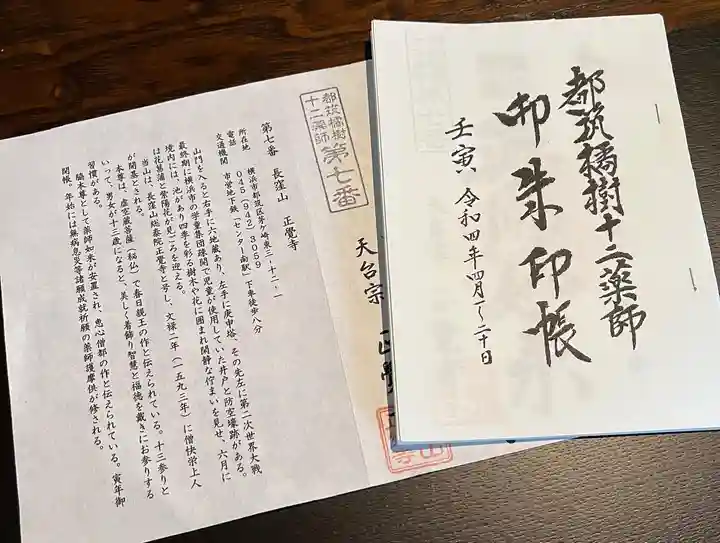 都筑橘樹十二薬師
印朱印帳
壬寅 令和四年四月〜二十日
都筑橘樹
十二薬師
第七番
天台宗
第七番 長窪山 正覺寺
所在地 横浜市都筑区茅ケ崎東三-十二-一
電話 045(942)3059
交通機関 市営地下鉄「センター南駅」下車徒歩八分
山門を入ると右手に六地蔵あり、左手に庚申塔、その先左に第二次世界大戦
最終期に横浜市の学童集団疎開で児童が使用していた井戸と防空壕跡がある。
境内には、池があり四季を彩る樹木や花に囲まれ閑静な佇まいを見せ、六月に
は花菖蒲と紫陽花が見ごろを迎える。
当山は、長窪山総泰院正覺寺と号し、文禄二年(一五九三年)に僧快栄上人
が開基とされる。
本尊は、虚空蔵菩薩(秘仏)で春日親王の作と伝えられている。十三参りと
いって、男女が十三歳になると、美しく着飾り智慧と福徳を戴きにお参りする
習慣がある。
脇本尊として薬師如来が安置され、恵心僧都の作と伝えられている。寅年御
開帳。年始には無病息災等諸願成就祈願の薬師護摩供が修される。